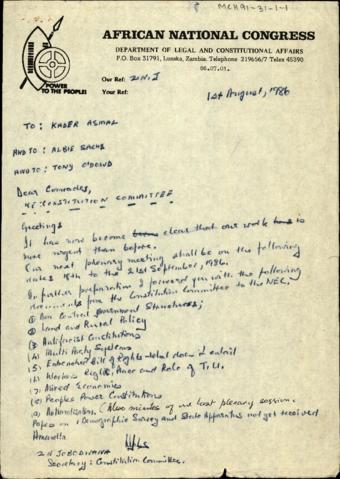 MCH91-31-1-1
AFRICAN NATIONAL CONGRESS
DEPARTMENT OF LEGAL AND CONSTITUTIONAL AFFAIRS
P.O. Box 31791, Lusaka, Zambia. Telephone 219656/7 Telex 45390
06.07.01.
POWER
TO THE PEOPLE!
Our Ref: ZNJ
Your Ref:
1st August, 1986
TO : KADER ASMAL
AND TO : ALBIE SACHS
AND TO : TONY O'DOWD
Dear Comrades,
RE: CONSTITUTION COMMITTEE
Greetings
It has now become clear that our work is
more urgent than before.
Our next plenary meeting shall be on the following
dates 14th to the 21st September, 1986.
In further preparation I forward you with the following
documents from the Constitution Committee to the NEC.
(1) Non Central Government Structures;
(2) Land and Rural Policy
(3) Antifascist Constitutions
(4) Multi Party Systems
(5) Entrenched Bill of Rights - what does it entail
(6) Workers Rights, Power and Role of T.U.
(7) Mixed Economies
(8) Peoples Power Constitutions
(9) Nationalisation. (Also minutes of our last plenary session.
Papers on: Demographic Survey and State Apparatus not yet received
Amandla
ZN JOBODWANA
Secretary: Constitution Committee.